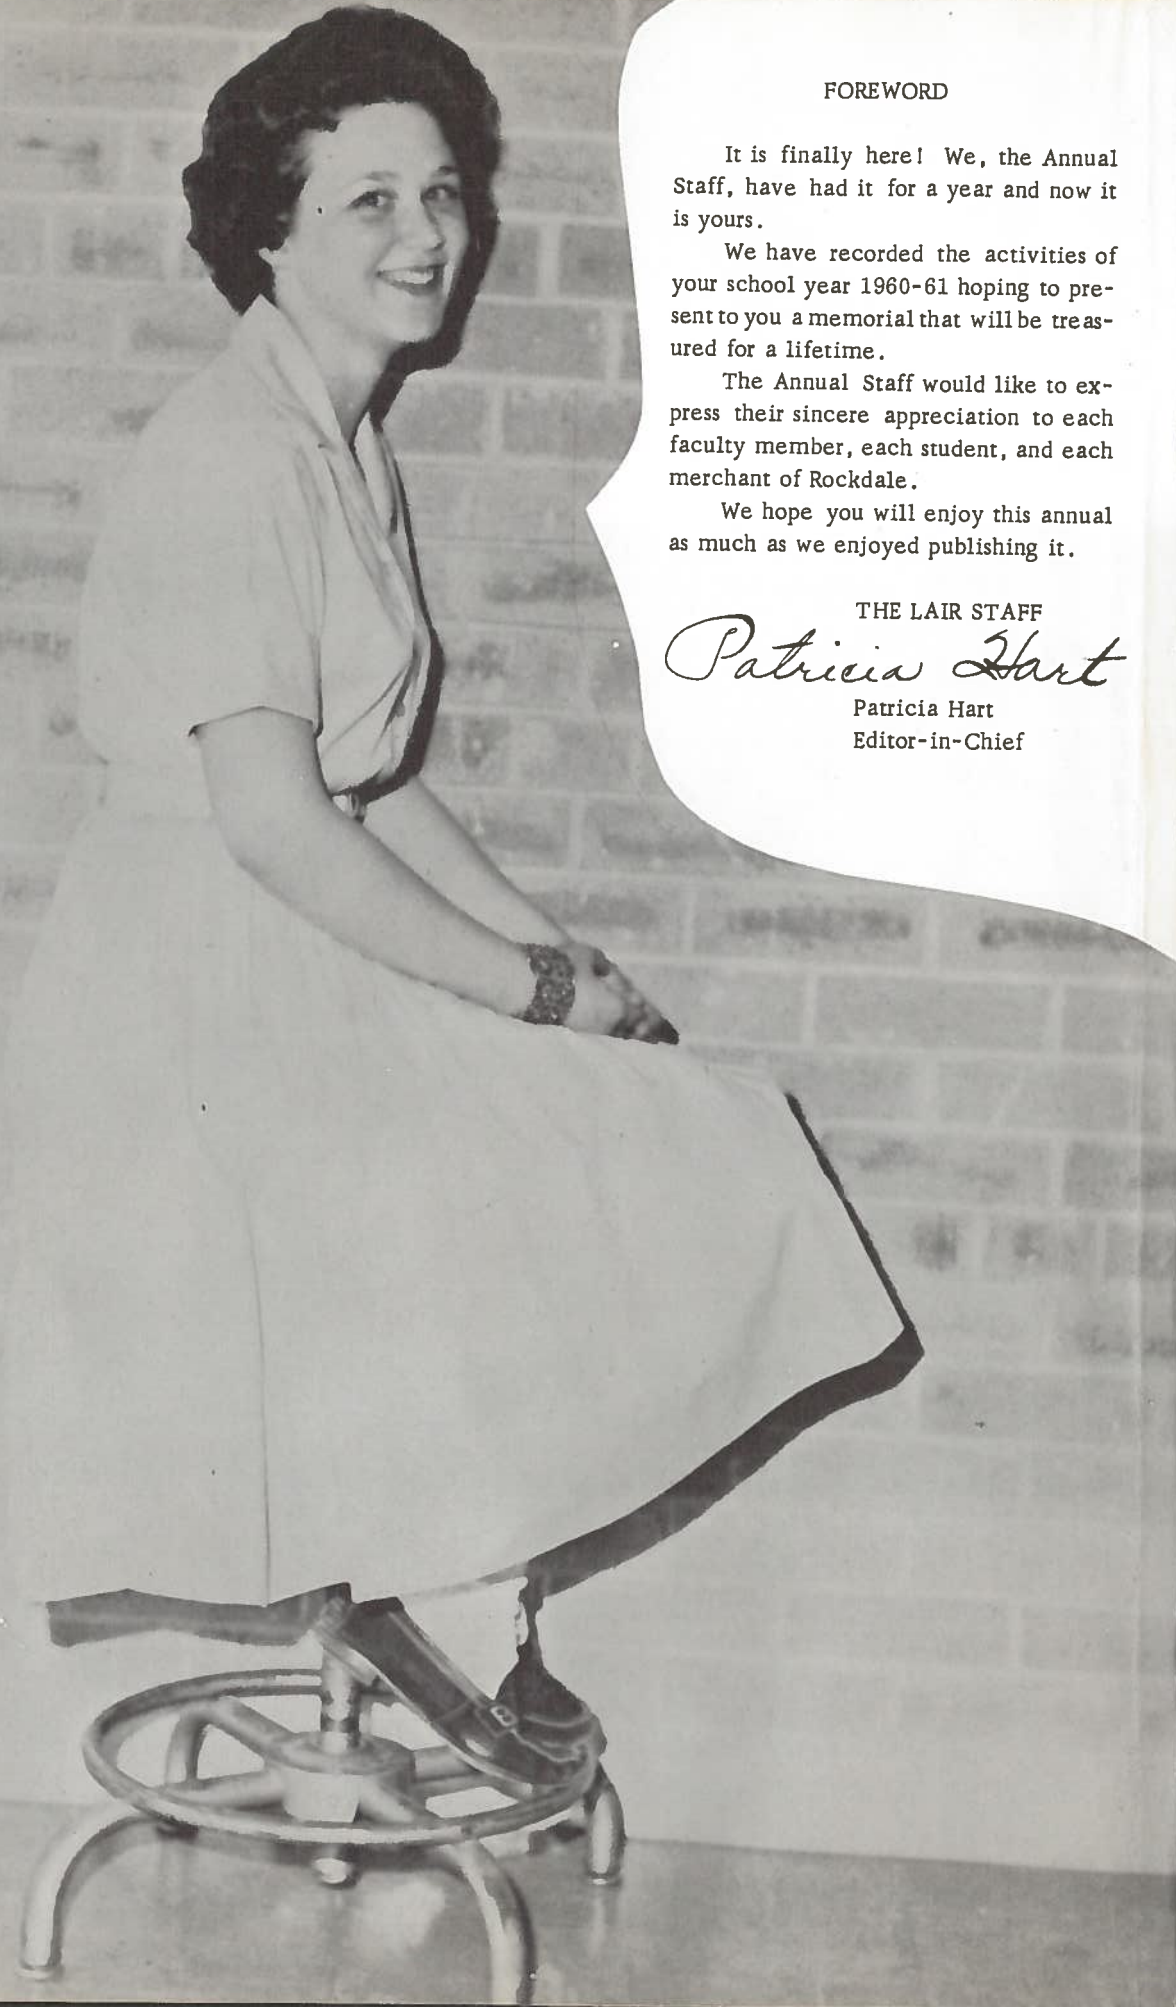 FOREWORD
It is finally here! We, the Annual
Staff, have had it for a year and now it
is yours.
We have recorded the activities of
your school year 1960-61 hoping to pre-
sent to you a memorial that will be treas-
ured for a lifetime.
The Annual Staff would like to ex-
press their sincere appreciation to each
faculty member, each student, and each
merchant of Rockdale.
We hope you will enjoy this annual
as much as we enjoyed publishing it.
THE LAIR STAFF
Patricia Hart
Patricia Hart
Editor-in-Chief